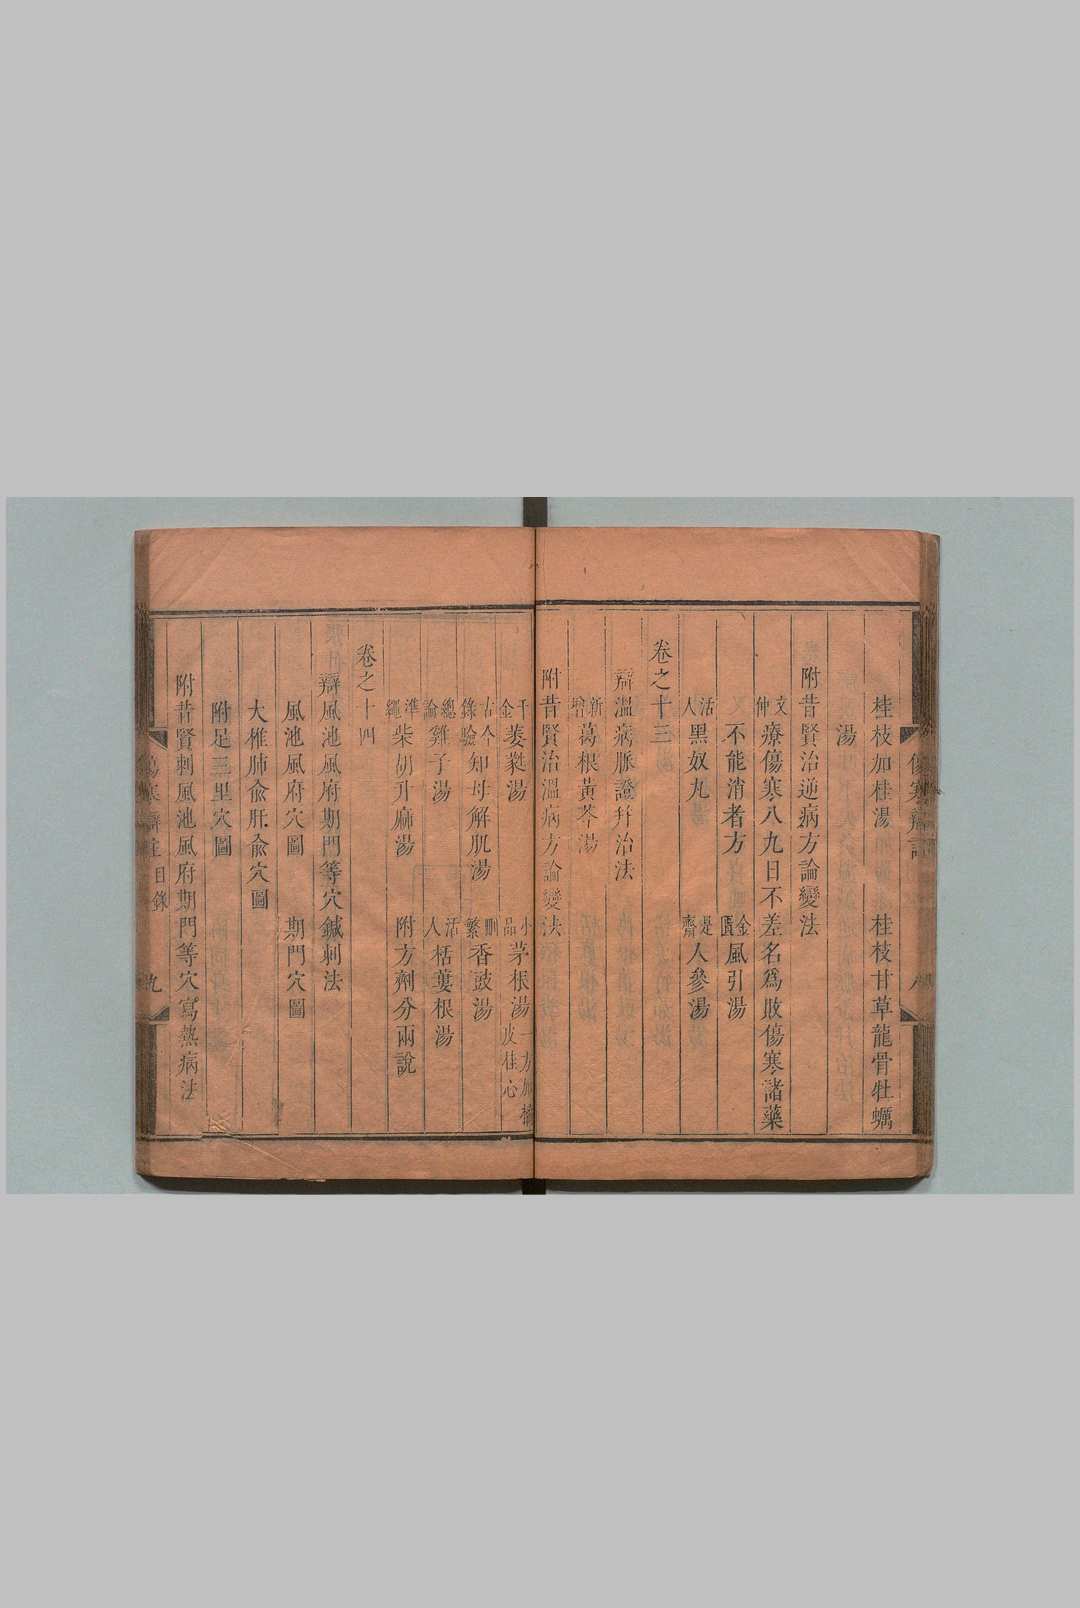 桂枝加桂湯 桂枝甘草龍骨牡蠣
湯
附昔賢治逆病方論變法
文仲療傷寒八九日不差名爲敗傷寒諸藥
不能消者方 金匱風引湯
活人黑奴丸 是齋人參湯
卷之十三
辯溫病脈證幷治法
新增葛根黃芩湯
附昔賢治溫病方論變法
千金萎蕤湯 小品茅根湯一方加橘皮桂心
古今錄驗知母解肌湯 刪繁香豉湯
總論雞子湯 活人栝蔞根湯
準繩柴胡升麻湯 附方劑分兩說
卷之十四
辯風池風府期門等穴鍼刺法
風池風府穴圖 期門穴圖
大椎肺兪肝兪穴圖
附足三里穴圖
附昔賢刺風池風府期門等穴寫熱病法
傷寒辯註 目錄 九